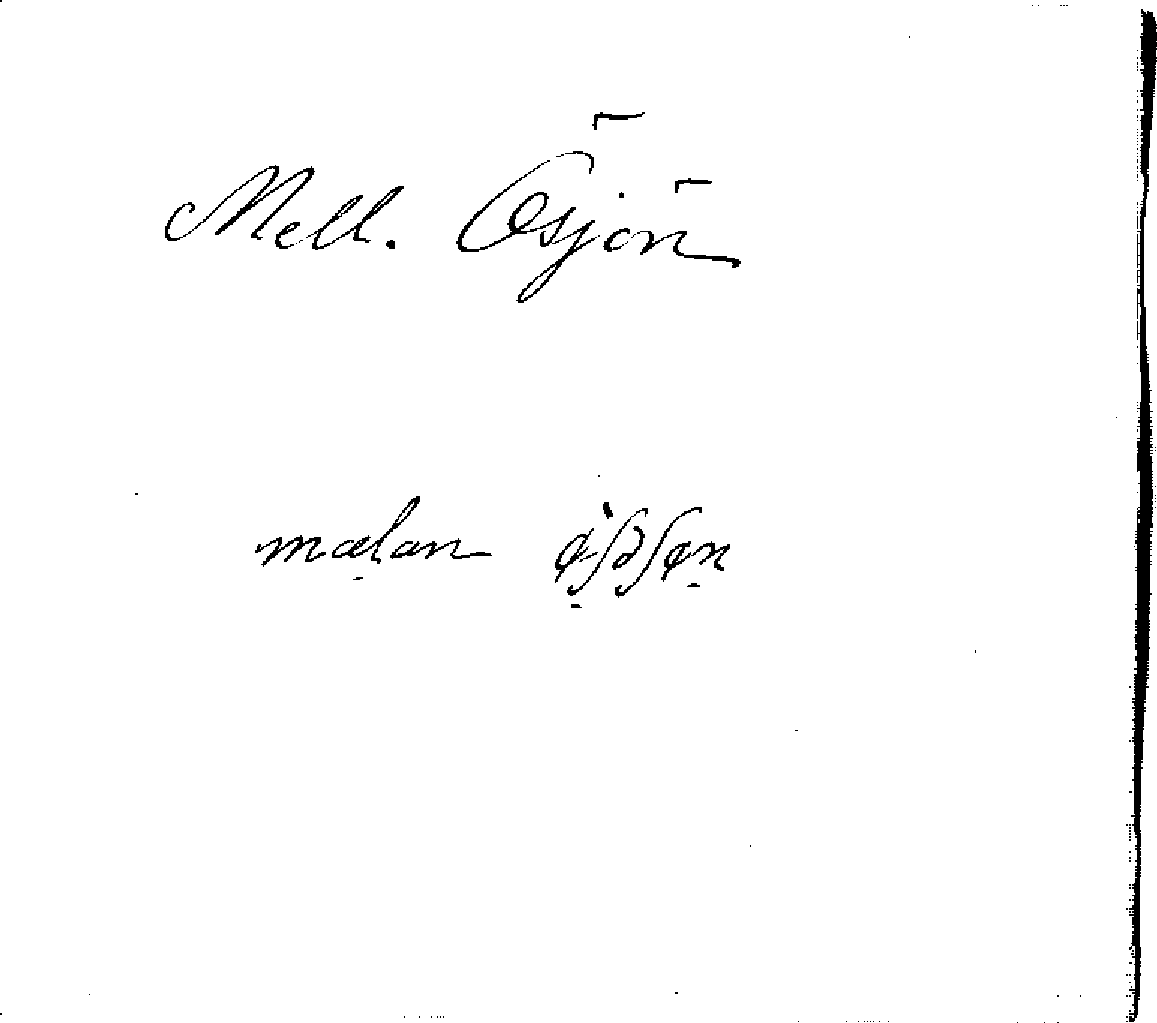 Mell. Ösjön
mælan